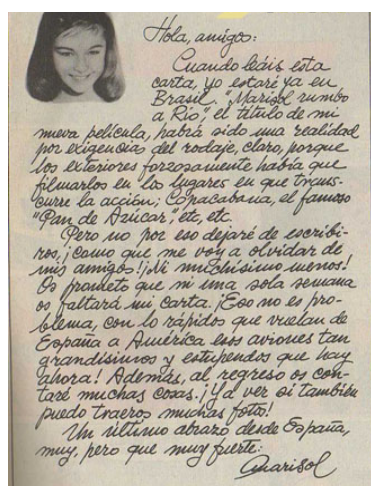 Hola, amigos:
Cuando leáis esta
carta, yo estaré ya en
Brasil. "Marisol rumbo
a Río", el título de mi
nueva película, habrá sido una realidad
por exigencia del rodaje, claro, porque
los exteriores forzosamente había que
filmarlos en los lugares en que trans-
curre la acción; Copacabana, el famoso
"Pan de Azúcar", etc, etc.
Pero no por eso dejaré de escribi-
ros, ¡como que me voy a olvidar de
mis amigos! ¡Ni muchísimo menos!
Os prometo que ni una sola semana
os faltará mi carta. ¡Eso no es pro-
blema, con lo rápidos que vuelan de
España a América esos aviones tan
grandísimos y estupendos que hay
ahora! Además, al regreso os con-
taré muchas cosas. ¡Ya ver si también
puedo traeros muchas fotos!
Un último abrazo desde España,
muy, pero que muy fuerte:
Marisol